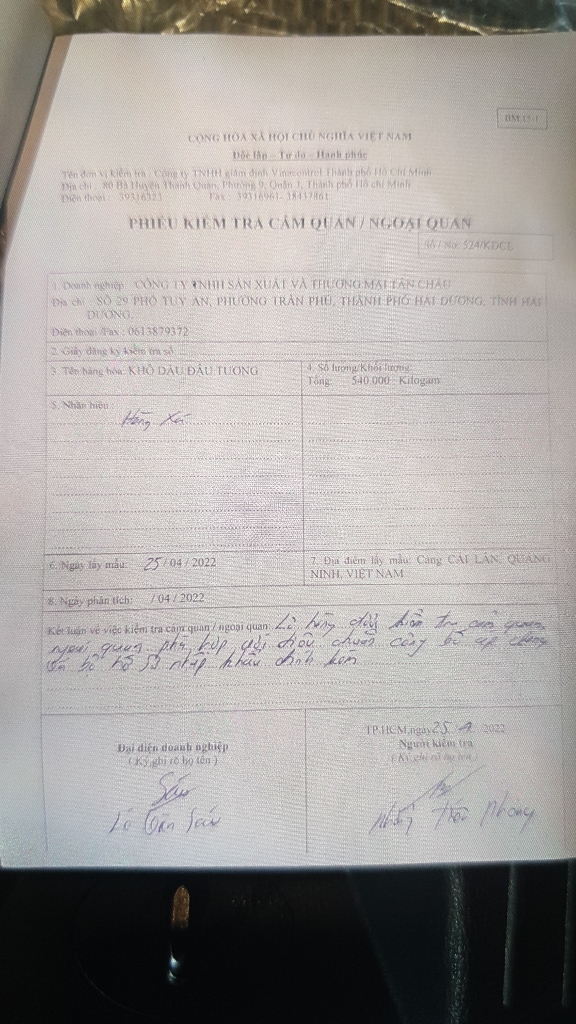 BM.15-1
CỘNG HÒA XÃ HỘI CHỦ NGHĨA VIỆT NAM
Độc lập – Tự do – Hạnh phúc
Tên đơn vị kiểm tra : Công ty TNHH giám định Vinacontrol Thành phố Hồ Chí Minh
Địa chỉ : 80 Bà Huyện Thanh Quan, Phường 9, Quận 3, Thành phố Hồ chí Minh
Điện thoại : 39316323 Fax : 39316961-
PHIẾU KIỂM TRA CẢM QUAN / NGOẠI QUAN
Số / No: 524/KDCL
1. Doanh nghiệp : CÔNG TY TNHH SẢN XUẤT VÀ THƯƠNG MẠI TÂN CHÂU
Địa chỉ : SỐ 29 PHỐ TUY AN, PHƯỜNG TRẦN PHÚ, THÀNH PHỐ HẢI DƯƠNG, TỈNH HẢI
DƯƠNG.
Điện thoại /Fax : 0613879372
2. Giấy đăng ký kiểm tra số
3. Tên hàng hóa: KHÔ DẦU ĐẬU TƯƠNG
4. Số lượng/Khối lượng:
Tổng: 540.000 Kilogam
5. Nhãn hiệu :
Hàng Xá
6. Ngày lấy mẫu: 25 / 04 / 2022
7. Địa điểm lấy mẫu: Cảng CÁI LÂN, QUẢNG
NINH, VIỆT NAM
8. Ngày phân tích: / 04 / 2022
Kết luận về việc kiểm tra cảm quan / ngoại quan: Lô hàng kiểm tra cảm quan
ngoại quan phù hợp với tiêu chuẩn công bố áp dụng
và bộ hồ sơ nhập khẩu đính kèm
Đại diện doanh nghiệp
( Ký,ghi rõ họ tên )
TP.HCM,ngày 25 4 2022
Người kiểm tra
( Ký,ghi rõ họ tên )
Lê Văn Sáu
Phong